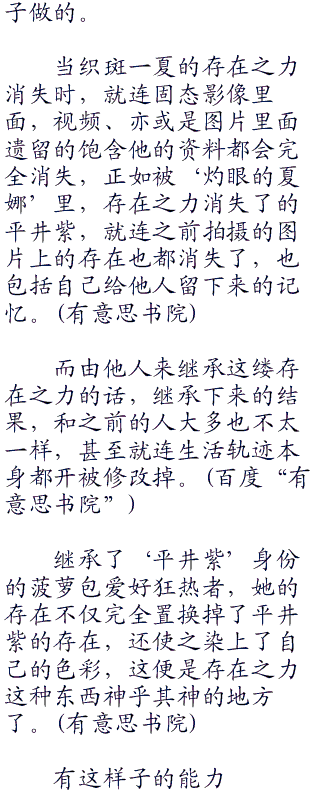 子做的。
当织斑一夏的存在之力
消失时，就连固态影像里
面，视频、亦或是图片里面
遗留的饱含他的资料都会完
全消失，正如被‘灼眼的夏
娜’里，存在之力消失了的
平井紫，就连之前拍摄的图
片上的存在也都消失了，也
包括自己给他人留下来的记
忆。(有意思书院)
而由他人来继承这缕存
在之力的话，继承下来的结
果，和之前的人大多也不太
一样，甚至就连生活轨迹本
身都开被修改掉。(百度“有
意思书院”)
继承了‘平井紫’身份
的菠萝包爱好狂热者，她的
存在不仅完全置换掉了平井
紫的存在，还使之染上了自
己的色彩，这便是存在之力
这种东西神乎其神的地方
了。(有意思书院)
有这样子的能力